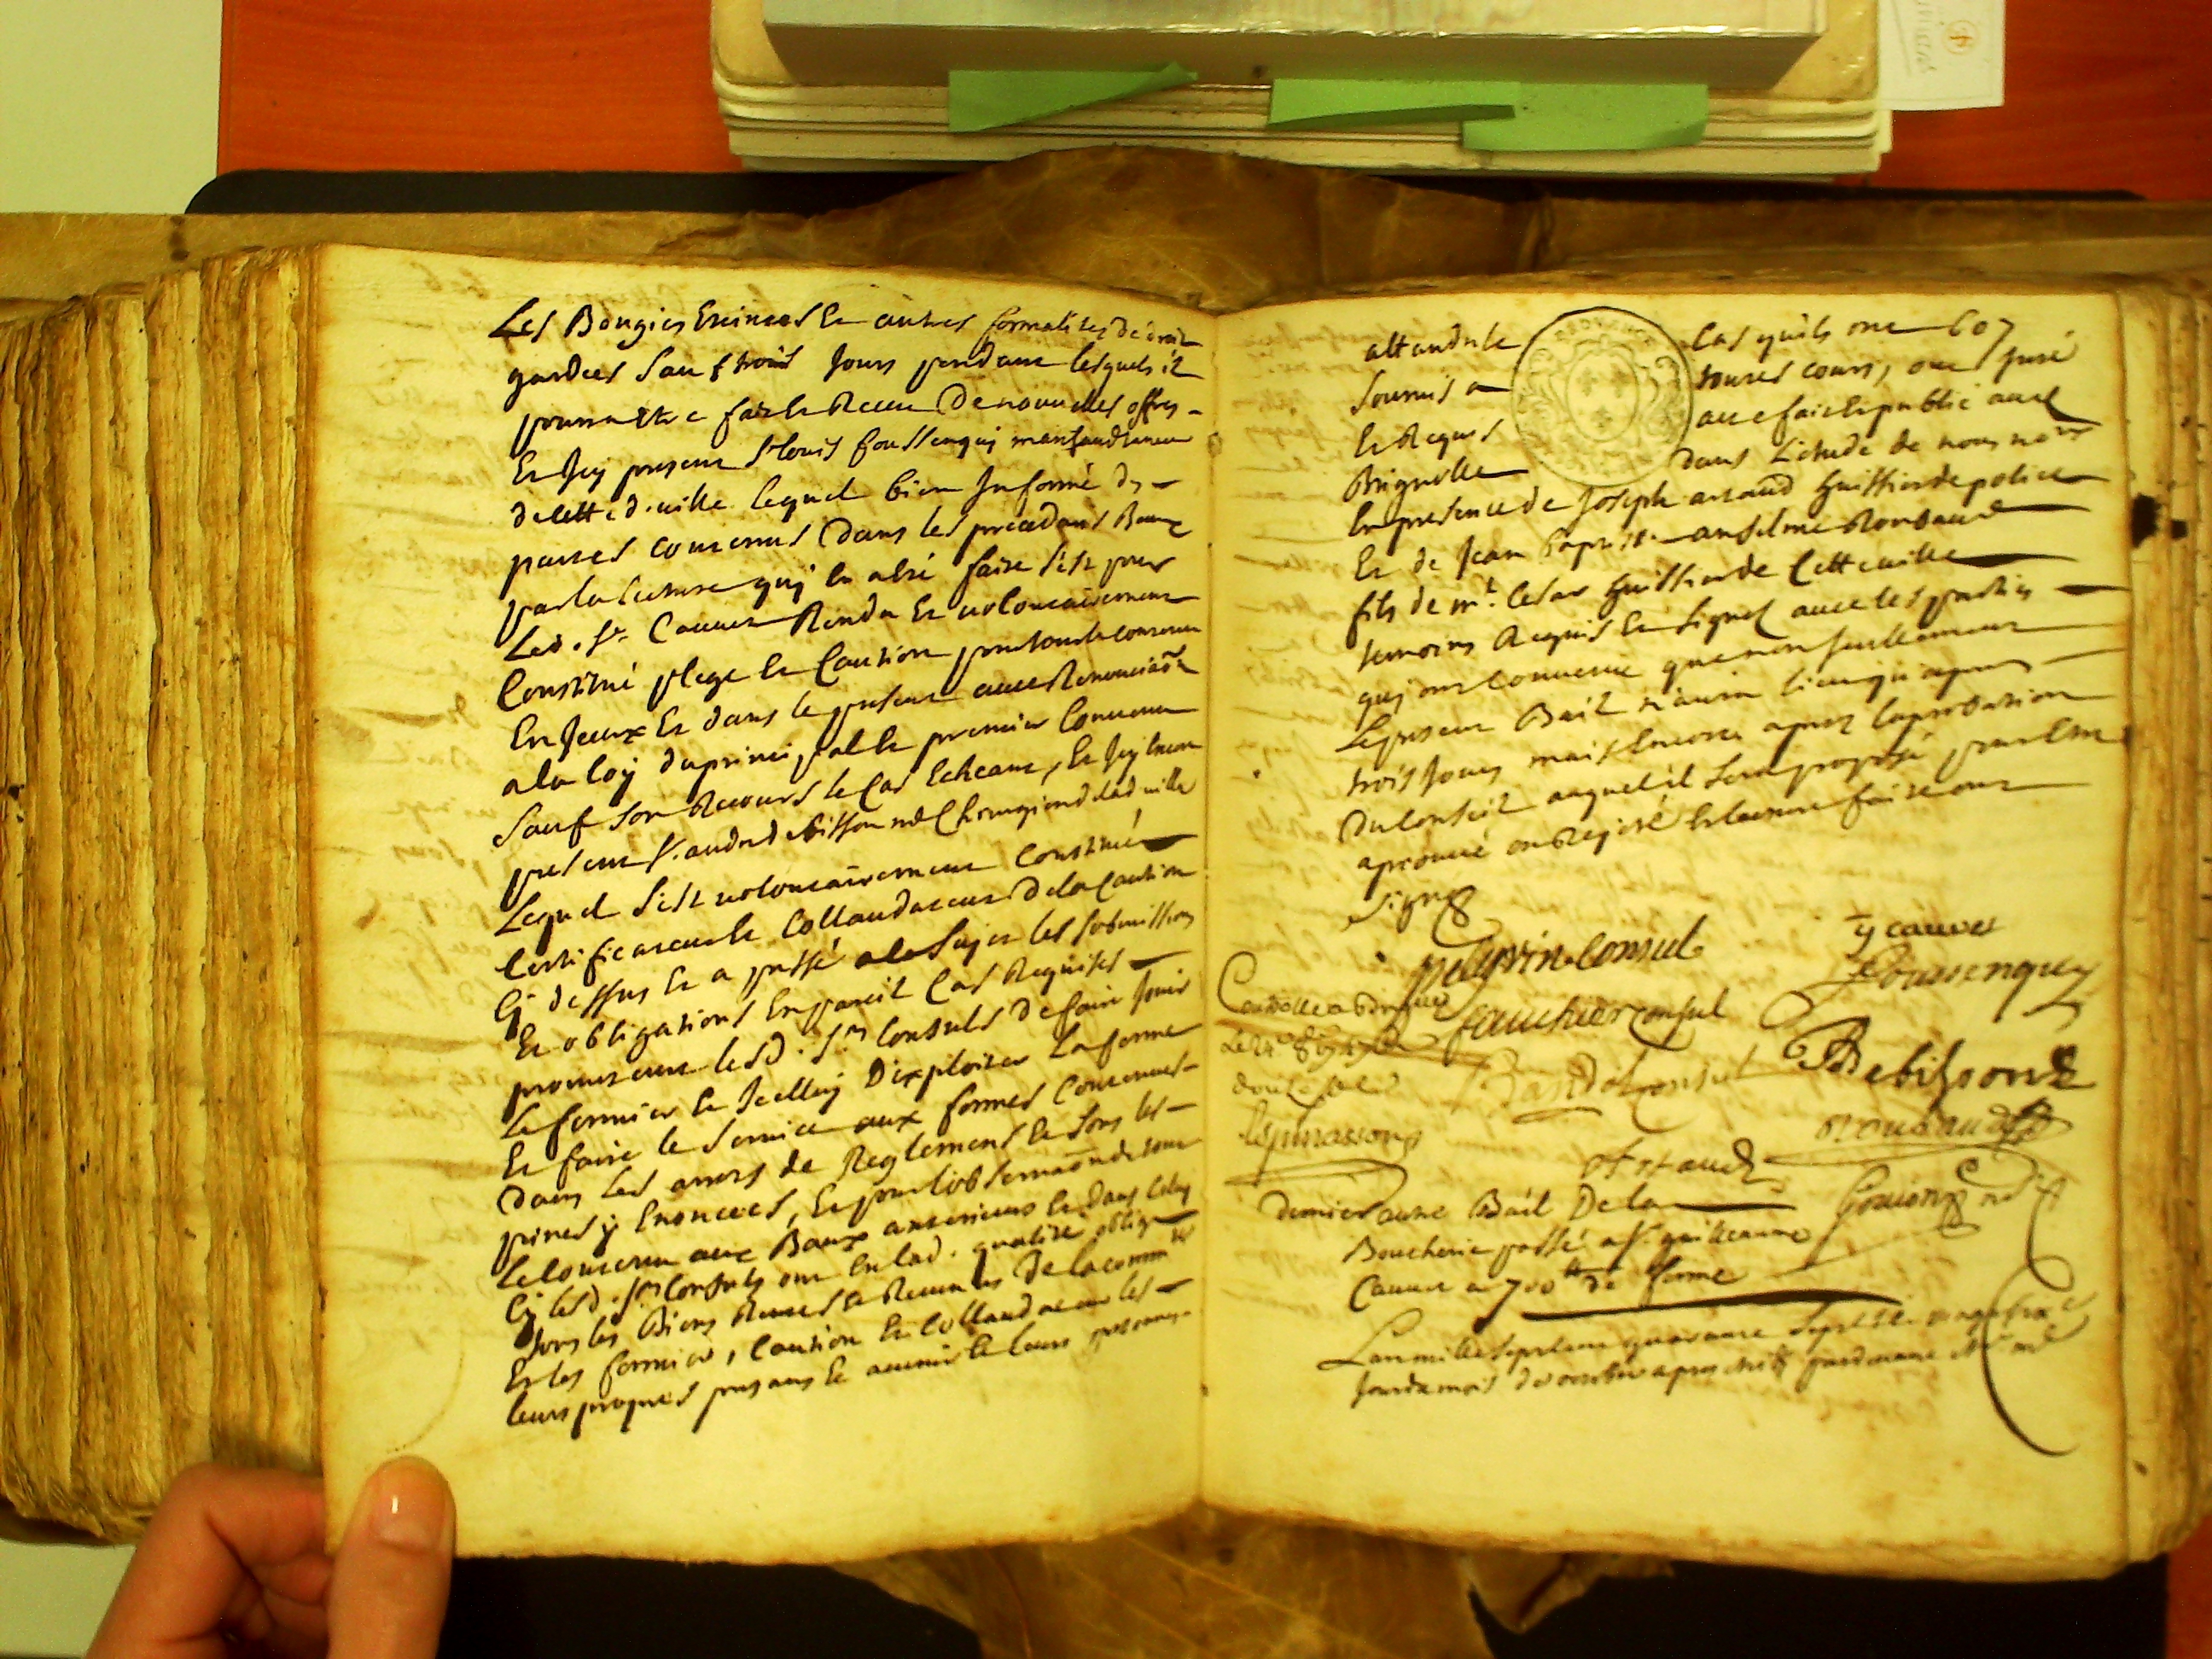 Les Bougies Eteintes Et autres formalités de droit
gardées Sauf trois Jours pendant lesquels il
pourra être fait Et Receu De nouvelles offres
Et Icy present Sr Louis foussenquy
de cette d. ville lequel bien Informé des
pactes contenus Dans les precedans Baux
par la lecture quj En a été faite s'est pour
Led. Sr Cauvet Rendu Et volontairement
Constitué plege Et Caution pour tout le contenu
En Iceux Et dans le present avec Renonciaõn
a la loy du principal Et premier Convenu
Sauf Son Recours le Cas Echeant, Et Icy Encore
present Sr. andré debisson me Chirurgien de lad ville
Lequel s'est volontairement Constitué
Certificateur Et Collaudateur De la Caution
Cy dessus Et a passé a ce Sujet les submissions
Et obligations En pareil Cas Requises
promettant lesd. Srs Consuls de faire Jouir
Le fermier Et Icelluy D'exploiter La ferme
Et faire le Service aux formes Contenues
Dans Les arrets de Reglement Et Sous les
peines y Enoncées, Et pour l'observaõn de tout
Le Contenu aux Baux anterieurs Et Dans Celuy
Cy lesd. Srs Consuls ont En lad. qualité obligé
tous les Biens Rentes Et Revenus De la comm té
Et les fermier, Caution Et Collaudateur les
leurs propres presans Et avenir Et leurs personnes
attandu le Cas quils ont 607
Soumis a toutes cours, ont Juré
Et Requis acte fait Et publié aud
Brignolle Dans L'étude de nous no re
En presence de Joseph artaud huissier de police
Et de Jean baptiste anselme Roubaud
fils de mr. Cesar huissier de Cette ville
temoins Requis Et Signés avec les parties
quj ont convenu que non seullement
Le present Bail n'aura lieu qu'apres
trois Jours mais Encore apres l'aprobation
Du Conseil auquel il Sera proposé pour Etre
aprouvé ou Rejetté Et lecture faite ont
Signé
pelgrin Consul
y cauvet
fauchier consul
foussenquy
Debisson
Roubaud
Artaud
Dernier autre Bail De la
Boucherie passé a Sr. guilleaume
Cauvet a 700 lt de ferme
L'an mille Sept Cent quarante Sept
Jour du mois d'octobre apres midy pardevant